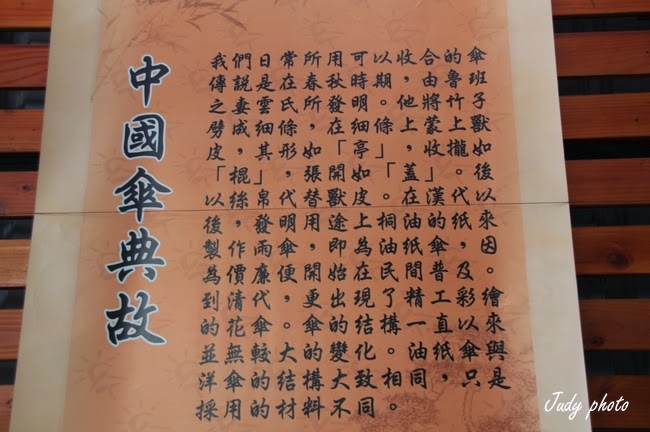 中國傘典故
我們日常所用可以收合的傘
傳說是在春秋時期，由魯班
之妻雲氏所發明。他將竹子
劈成細條，在細條上蒙上獸
皮，其形如「亭」，收攏如
「棍」，張開如「蓋」。後
以絲帛代替獸皮。在漢代以
後，發明用途上桐油的紙，來
製作雨傘，即為油紙傘。因
為價廉便，開始在民間普及。
到清代，更出現了精工彩繪
的花傘。傘的結構一直以來
並無較大的變化。油紙傘與
洋傘的結構大致相同，只是
採用的材料不同。
Judy photo